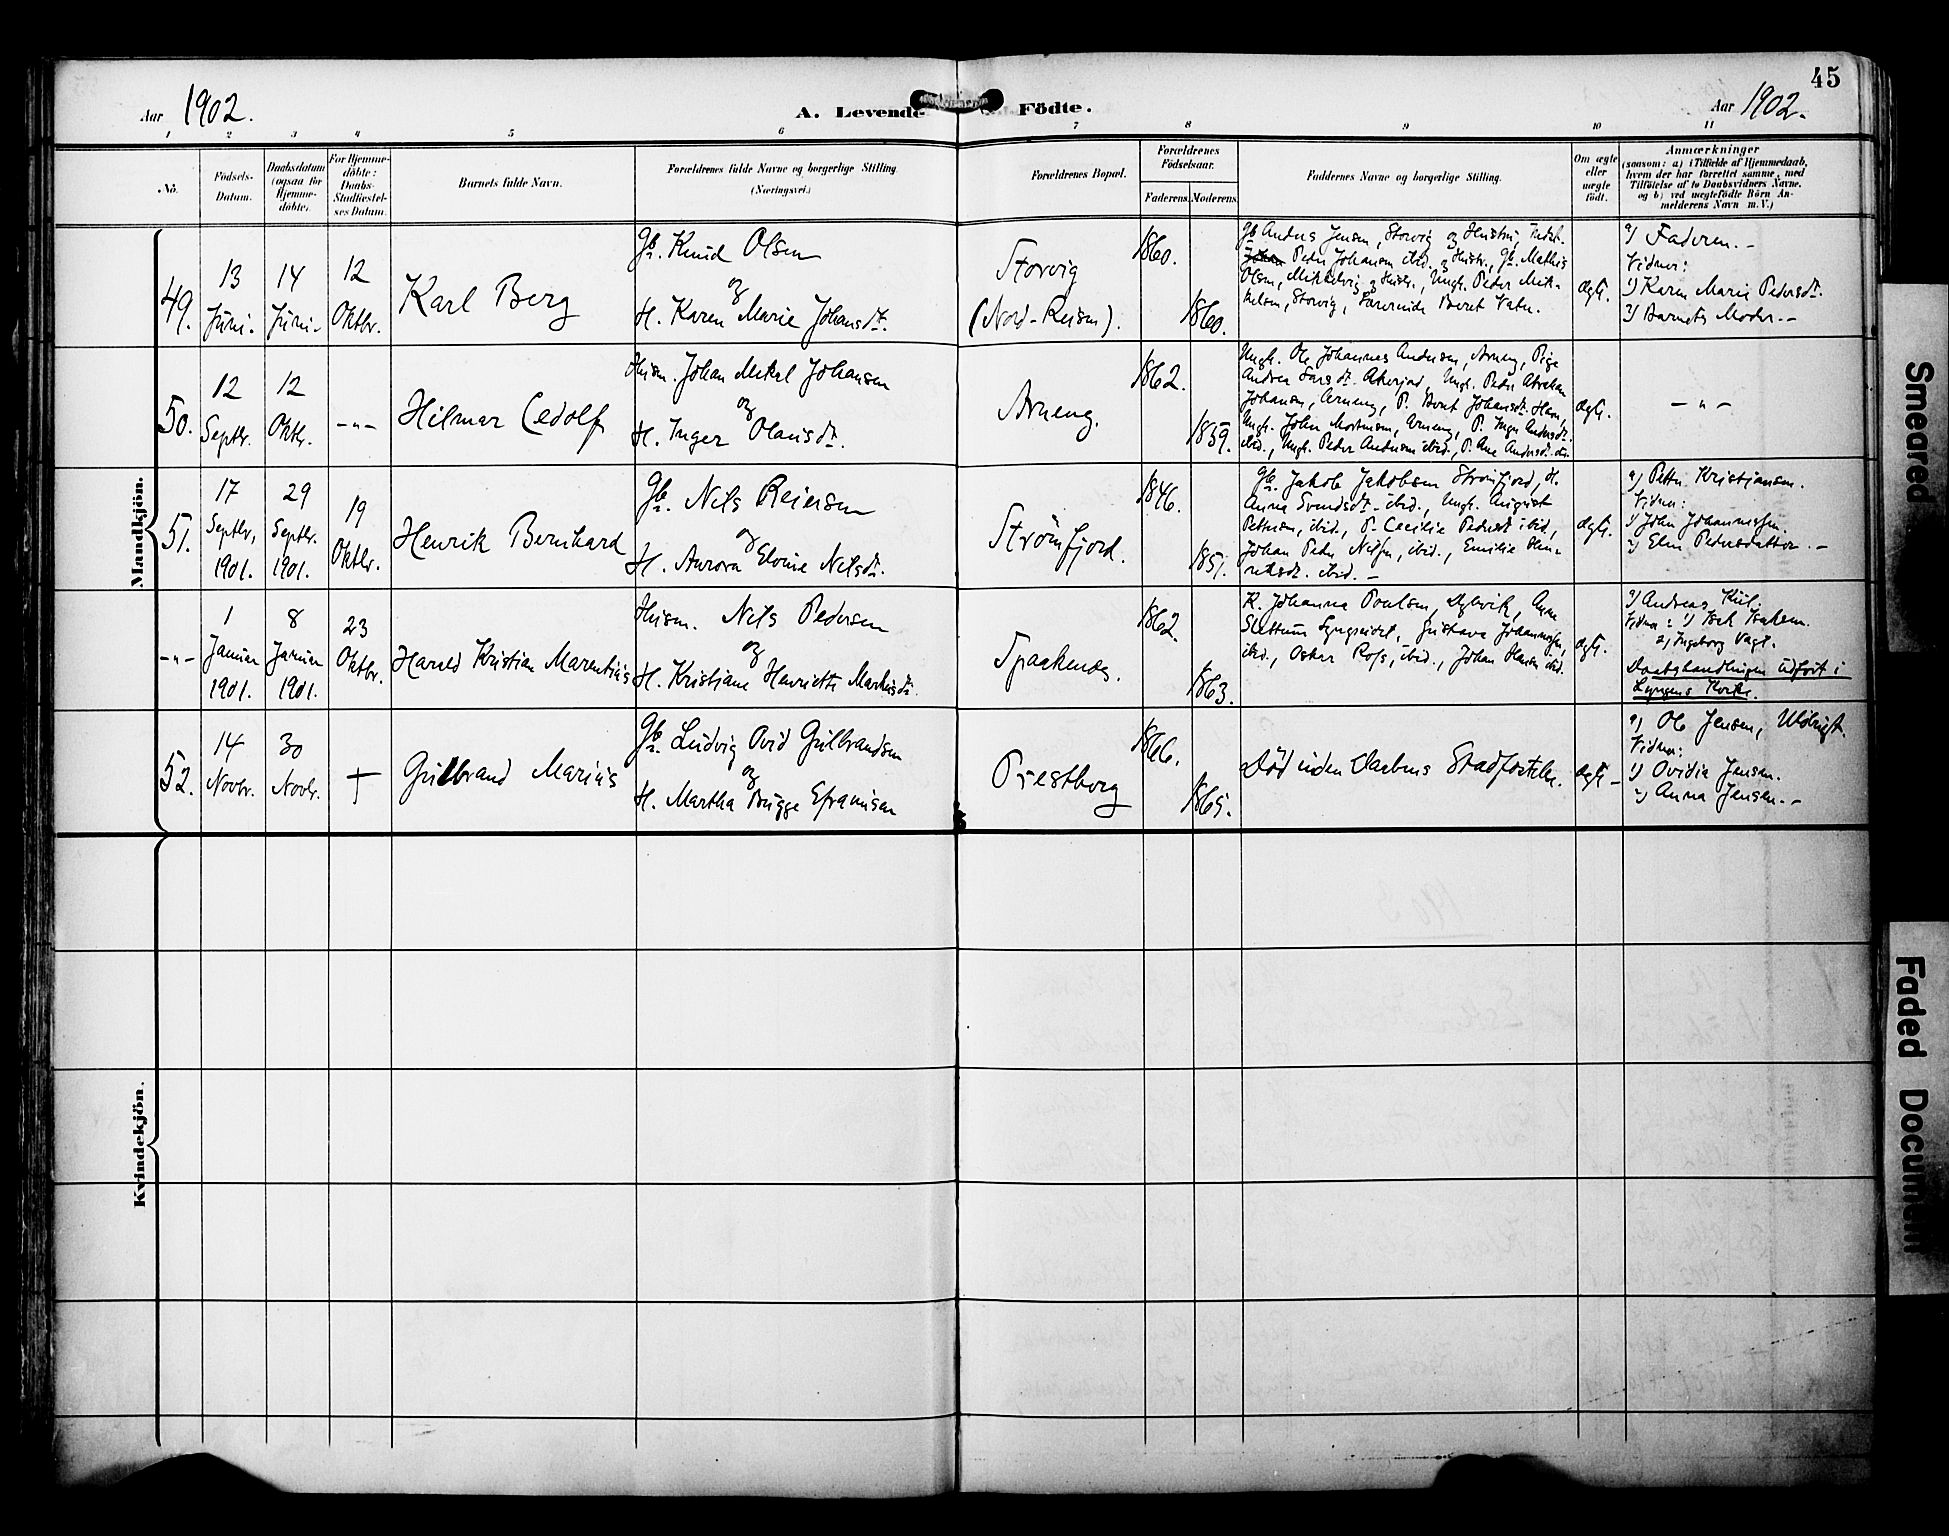 45
Aar 1902.
A. Levende Födte.
Aar 1902.
1 2 3 4 5 6 7 8 9 10 11
No.
Födsels-
Datum.
Daabsdatum
(ogsaa for
Hjemme-
döbte).
For Hjemme-
döbte:
Daabs-
Stadfæstel-
ses Datum.
Barnets fulde Navn.
Forældrenes fulde Navne og borgerlige Stilling
(Næringsvei.)
Forældrenes Bopæl.
Forældrenes
Födselsaar.
Faderens. Moderens.
Faddernes Navne og borgerlige Stilling.
Om ægte
eller
uægte
født.
Anmærkninger
(saasom: a) i Tilfælde af Hjemmedaab,
hvem der har forrettet samme, med
Tilföielse af to Daabsvidners Navne.
og b) ved uægtefödte Börn An-
melderens Navn m. V.)
Mandkjön.
49.
13
Juni.
14
Juni.
12
Oktbr.
Karl Berg
Gb. Knud Olsen
og
H. Karen Marie Johansdt.
Storvig
(Nord-Reisen).
1860.
1860.
Gb Anders Jensen, Storvig og Hustru, Indst.
Peder Johansen ibid. og Hustr., Gb. Mathis
Olsen, Mikkelvig og Hustr., Ungk. Peder Mik-
kelsen, Storvig, Beret Vatn.
ægt.
a) Faderen.-
Vidner:
1) Karen Marie Pedersdt.
2) Barnets Moder.-
50.
12
Septbr.
12
Oktbr.
-"-
Hilmar Cedolf
Husm. Johan Mikal Johansen
og
H. Inger Olausdt.
Arneng.
1862.
1859.
Ungk. Ole Johannes Andersen, Arneng, Pige
Andrea Larsdt. Akerjord, Ungk. Peder Abraham
Johansen, Arneng, P. Berit Johansdt. Ham,
Ungk. John Mortensen, Arneng, P. Inger Andersdt.
ibid., Ungk. Peder Andersen ibid., P. Ane Andersdt. ibid.
ægt.
-"-
51.
17
Septbr,
1901.
29
Septbr.
1901.
19
Oktbr.
Henrik Bernhard
Gb. Nils Reiersen
og
H. Aurora Elonie Nilsdt.
Strømfjord.
1846.
1851.
Gb. Jakob Jakobsen Strømfjord, H.
Anna Svendsdt. ibid., Ungk. August
Pettersen, ibid., P. Cecilie Pedersdt ibid,
Johan Peder Nilsen, ibid., Emilie Hen-
riksdt. ibid.-
ægt.
a) Petter Kristiansen.
Vidner:
1) John Johannessen.
2) Elen Pedersdatter.-
-"-
1
Januar
1901.
8
Januar
1901.
23
Oktbr.
Harald Kristian Marentius
Husm. Nils Pedersen
og
H. Kristiane Henriette Markusdt.
Spaakenes.
1862.
1863.
K. Johanna Poulsen, Dybvik, Anna
Slettum Lyngseidet, Gustava Johannessen,
ibid., Oskar Ross, ibid., Johan Hansen ibid.
ægt.
a) Andreas Kiil.
Vidner: 1) Isak Isaksen.
2) Ingeborg Vagt.
Daabshandlingen udført i
Lyngens Kirke.
52.
14
Novbr.
30
Novbr.
†
Gulbrand Marius
Gb. Ludvig Ovid Gulbrandsen
og
H. Martha Brügge Efraimsen
Prestberg
1866.
1865.
Død uden Daabens Stadfæstelse.
ægt-
a) Ole Jensen,
Vidner:
1) Ovidia Jensen.
2) Anna Jensen.-
Kvindekjön.
Smeared
Faded Document